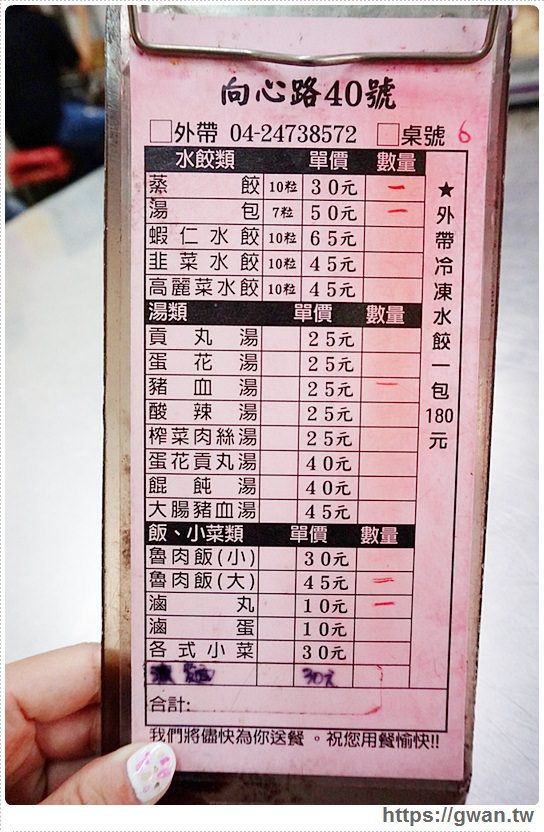 向心路40號
□外帶 04-24738572 □桌號 6
水餃類 單價 數量
蒸餃 10粒 30元 一
湯包 7粒 50元 一
蝦仁水餃 10粒 65元
韭菜水餃 10粒 45元
高麗菜水餃 10粒 45元
湯類 單價 數量
貢丸湯 25元
蛋花湯 25元
豬血湯 25元 一
酸辣湯 25元
榨菜肉絲湯 25元
蛋花貢丸湯 40元
餛飩湯 40元
大腸豬血湯 45元
飯、小菜類 單價 數量
魯肉飯(小) 30元
魯肉飯(大) 45元 二
滷丸 10元 一
滷蛋 10元
各式小菜 30元
30元
合計:
★外帶冷凍水餃一包180元
我們將儘快為你送餐。祝您用餐愉快!!
https://gwan.tw